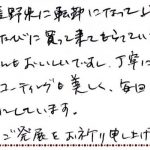 長野県に転勤になって上
たびに買って来てもらってい
んもおいしいですし、丁寧に
コーティングも美しく、毎日
にしています。
ご発展をお祈り申し上げ